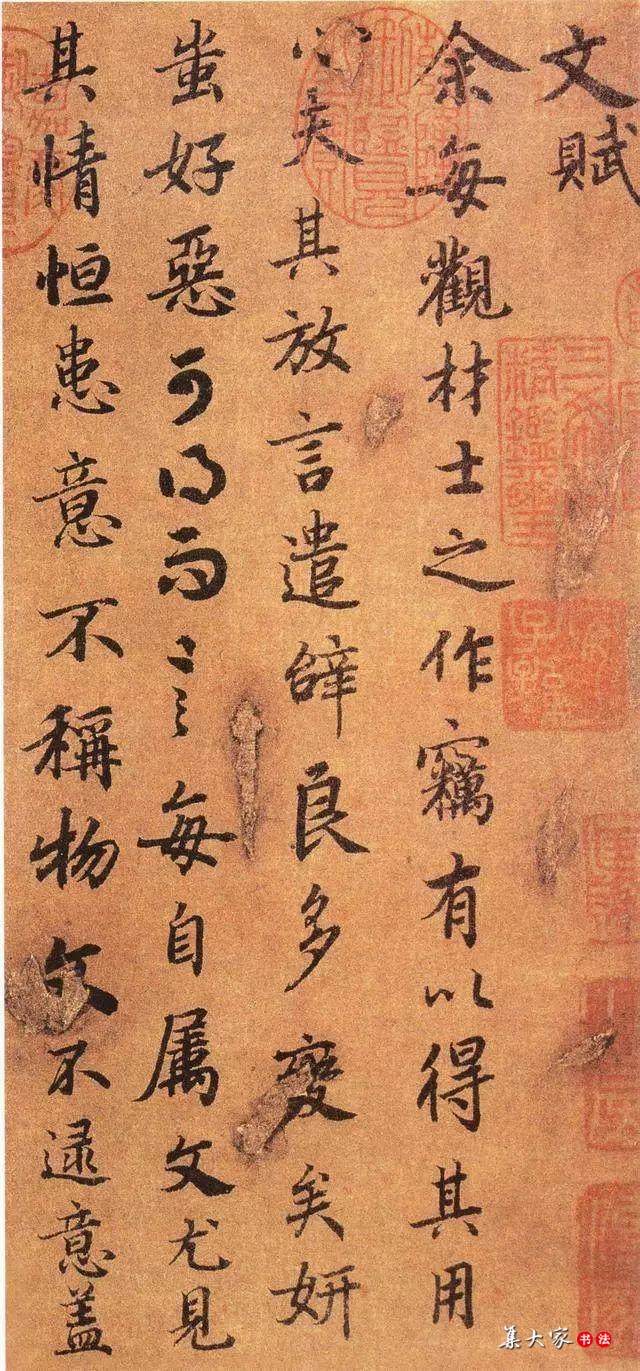 文賦
余每觀材士之作竊有以得其用
心夫其放言遣辭良多變矣妍
蚩好惡可得而言每自屬文尤見
其情恒患意不稱物文不逮意蓋
三希堂精鑑璽
宜子孫
集大家书法